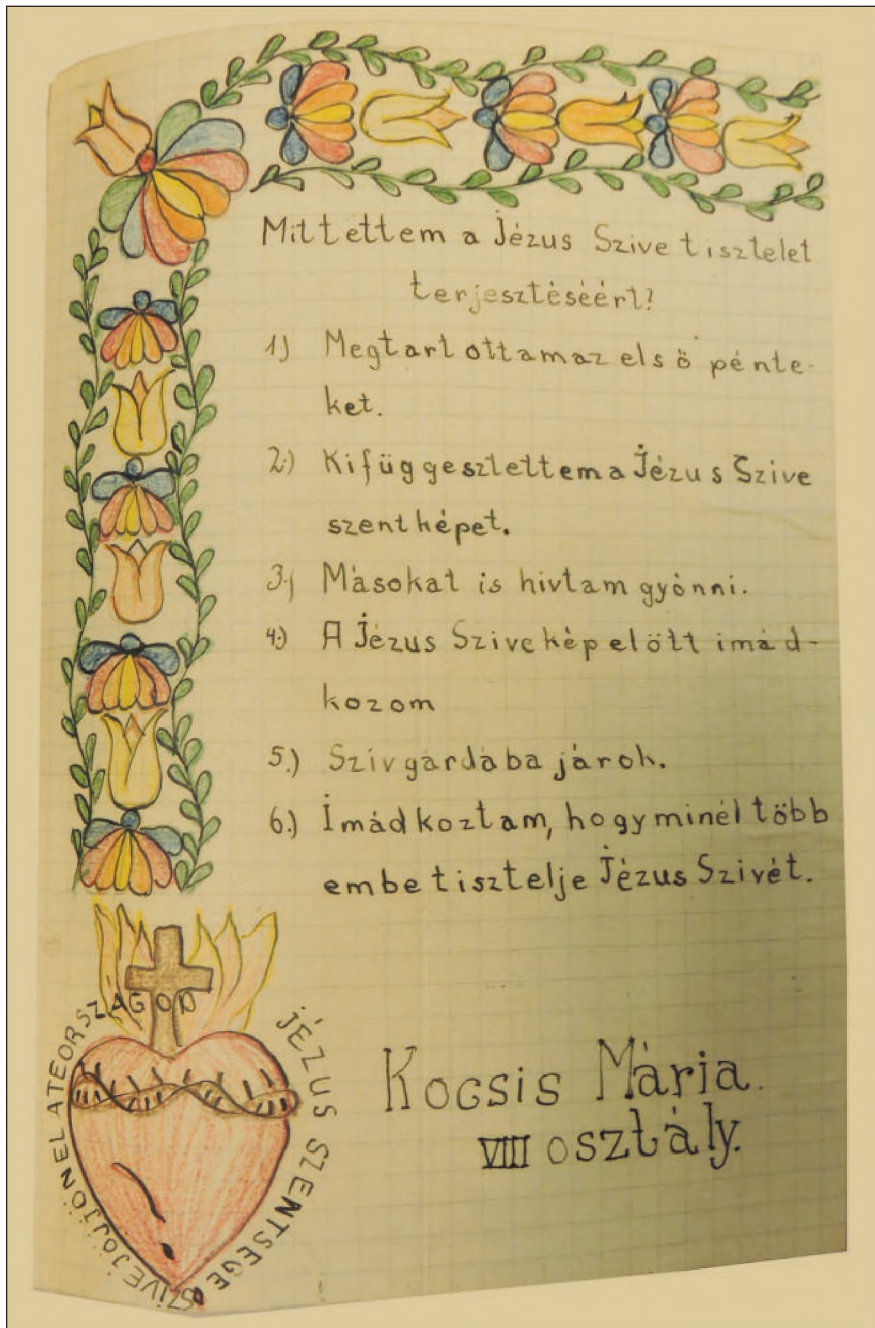 Mit tettem a Jézus Szive tisztelet
terjesztéséért?
1.) Megtartottam az első pénte-
ket.
2.) Kifüggesztettem a Jézus Szive
szentképet.
3.) Másokat is hivtam gyónni.
4.) A Jézus Szive kép előtt imád-
kozom
5.) Szivgárdába járok.
6.) Imádkoztam, hogy minél több
embe tisztelje Jézus Szivét.
JÉZUS SZENTSÉGES SZIVE JÖJJÖN EL A TE ORSZÁGOD
Kocsis Mária.
VIII osztály.